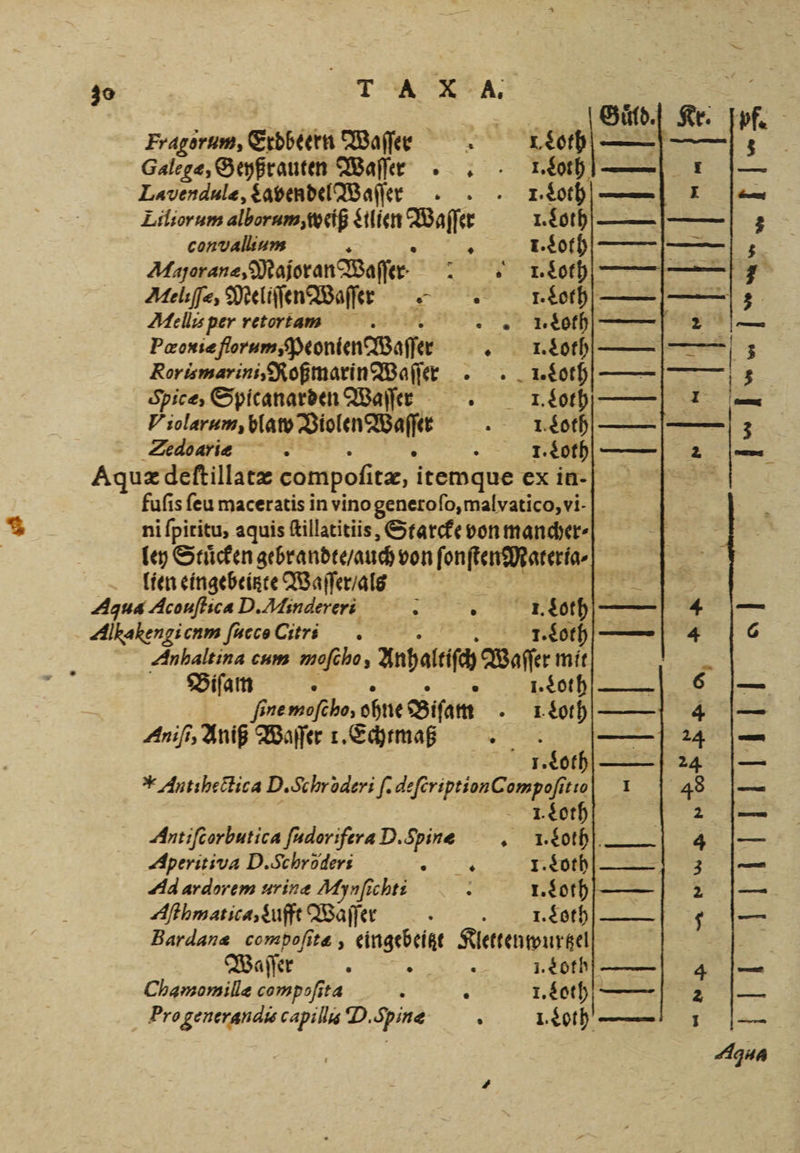 30 TAXA.
Gůld. Kr. pf.
Fragorum, Erdbeern Wasser . 1.Loth — — 3
Galegæ, Geyßrauten Wasser . . . 1.Loth — 1 —
Lavendulæ, LavendelWasser . . . 1.Loth — 1 —
Liliorum alborum, weiß Lilien Wasser 1.Loth — — 3
convallium . . . 1.Loth — — 3
Majoranæ, MajoranWasser . . 1.Loth — — 3
Melissæ, MelissenWasser . . 1.Loth — — 3
Mellis per retortam . . . . 1.Loth — 2 —
Pœoniæ florum, PeonienWasser . 1.Loth — — 3
Rorismarini, RoßmarinWasser . . 1.Loth — — 3
Spicæ, Spicanarden Wasser . 1.Loth — 1 —
Violarum, blaw ViolenWasser . 1.Loth — — 3
Zedoariæ . . . . 1.Loth — 2 —
Aquæ destillatæ compositæ, itemque ex in-
fusis seu maceratis in vino generoso, malvatico, vi-
ni spiritu, aquis stillatitiis, Starcke von mancher-
ley Stücken gebrandte/auch von sonstenMateria-
lien eingebeitzte Wasser/als
Aqua Acoustica D.Mindereri . . 1.Loth — 4 —
Alkakengi cnm succo Citri . . . 1.Loth — 4 6
Anhaltina cum moscho, Anhaltisch Wasser mit
Bisam . . . . 1.Loth — 6 —
sine moscho, ohne Bisam . 1.Loth — 4 —
Anisi, Aniß Wasser 1.Echtmaß . . — 24 —
1.Loth — 24 —
*Antihectica D.Schröderi s. descriptionCompositio 1 48 —
1.Loth 2 —
Antiscorbutica sudorifera D.Spinæ . 1.Loth — 4 —
Aperitiva D.Schröderi . . 1.Loth — 3 —
Ad ardorem urinæ Mynsichti . 1.Loth — 2 —
Asthmatica, Lufft Wasser . . 1.Loth — 5 —
Bardanæ composita, eingebeitzt Klettenwurtzel
Wasser . . . 1.Loth — 4 —
Chamomillæ composita . . 1.Loth — 2 —
Pro generandis capillis D.Spinæ . 1.Loth — 1 —
Aqua